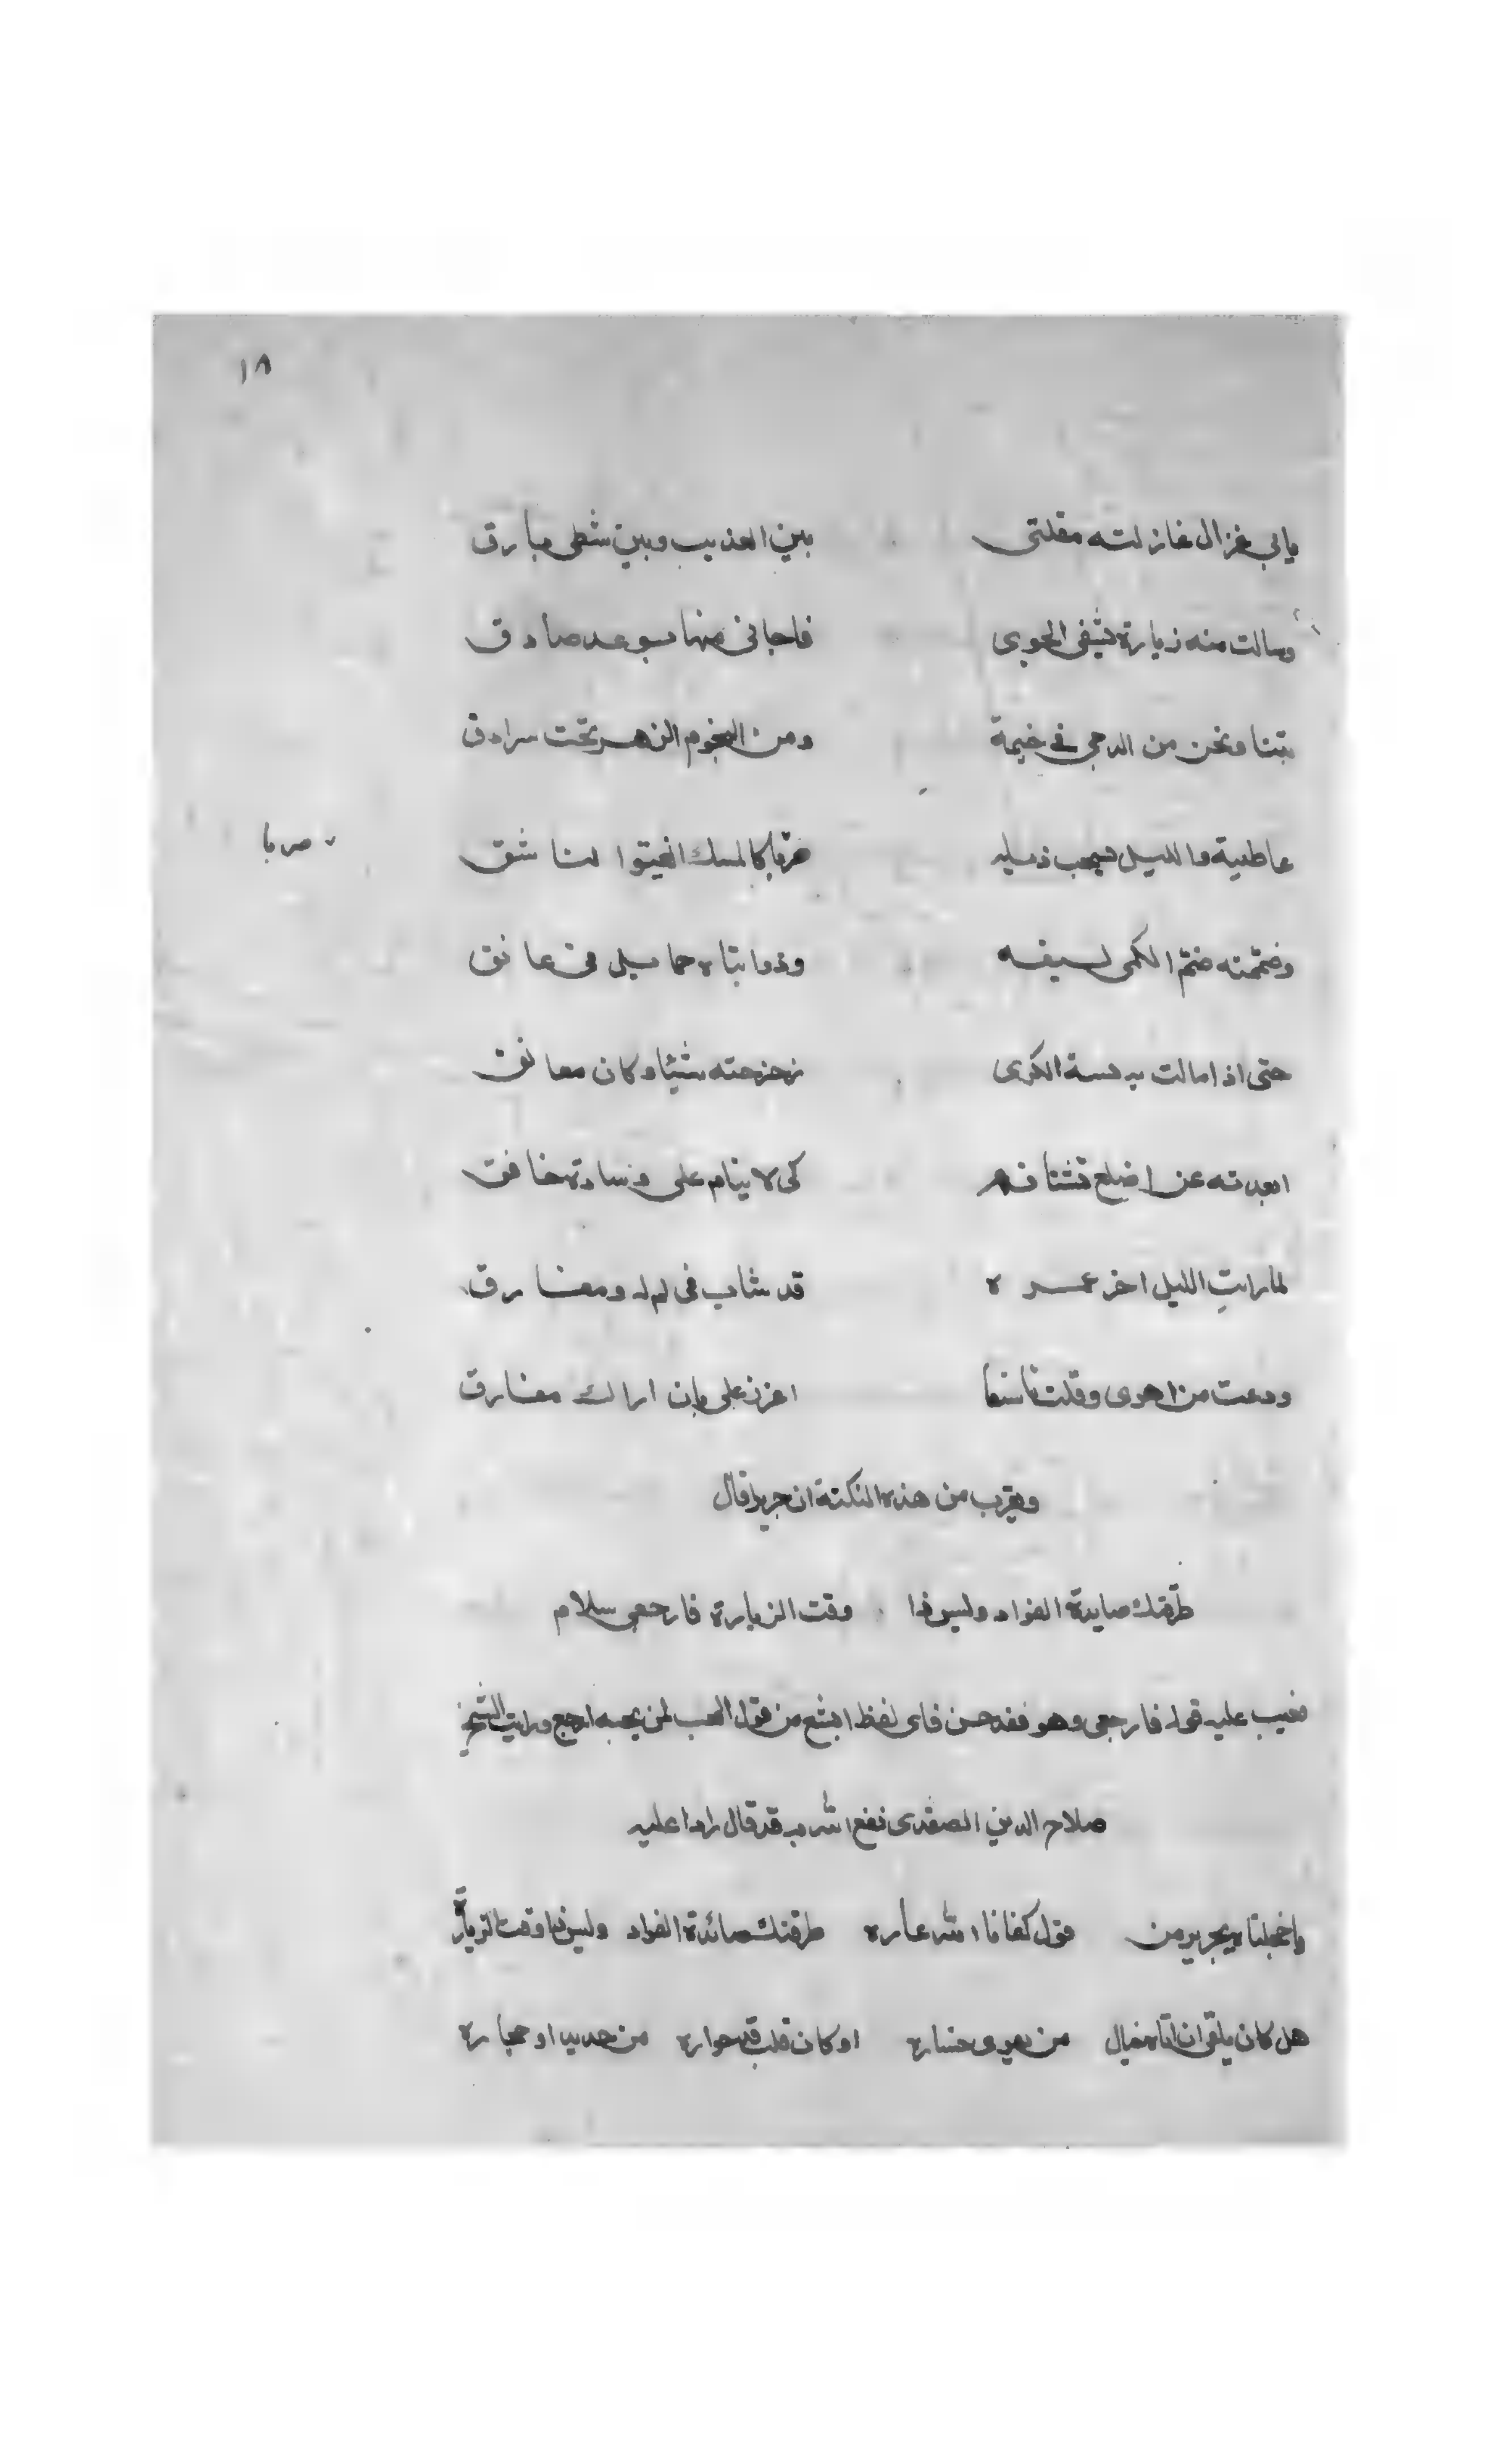 ١٨
بابي غزال غازلته مقلتي بين العذيب وبين شطى بارق
وسالت منه زيارة تشفى الجوى فاجابنى منها بوعد صادق
بتنا ونحن من الدجى فى خيمة ومن النجوم الزهر تحت سرادق
عاطيته والليل يسحب ذيله كالمسك الفتيق الناشق
صربا
وضممته ضم الكمى لسيفه وذوابتاه حمايل فى عاتق
حتى اذا مالت به سنة الكرى زحزحته شيئا وكان معانق
ابعدته عن اضلع تشتاقه كى لا ينام على وسادة خافق
لما رايت الليل اخر عمره قد شاب فى لم له ومفارق
ودعت من اهوى وقلت تاسفا اعزز على بان اراك مفارق
ويقرب من هذه النكتة ان جريرا قال
طرقتك صايدة الفواد وليس ذا وقت الزيارة فارجعى سلام
فعيب عليه قوله فارجعى وهو فقد حسن فاى لفظ ابشع من قول المحب لمن يحبه ارجع ورايت الشيخ
صلاح الدين الصفدى نفع الله به قد قال رادا عليه
واخجلتاه لجرير من قول كفانا الله عاره طرقتك صائدة الفواد وليس ذا وقت الزيارة
هل كان يلقى ان اتاه خيال من يهوى خساره او كان قلب قد حواره من حديد او حجاره